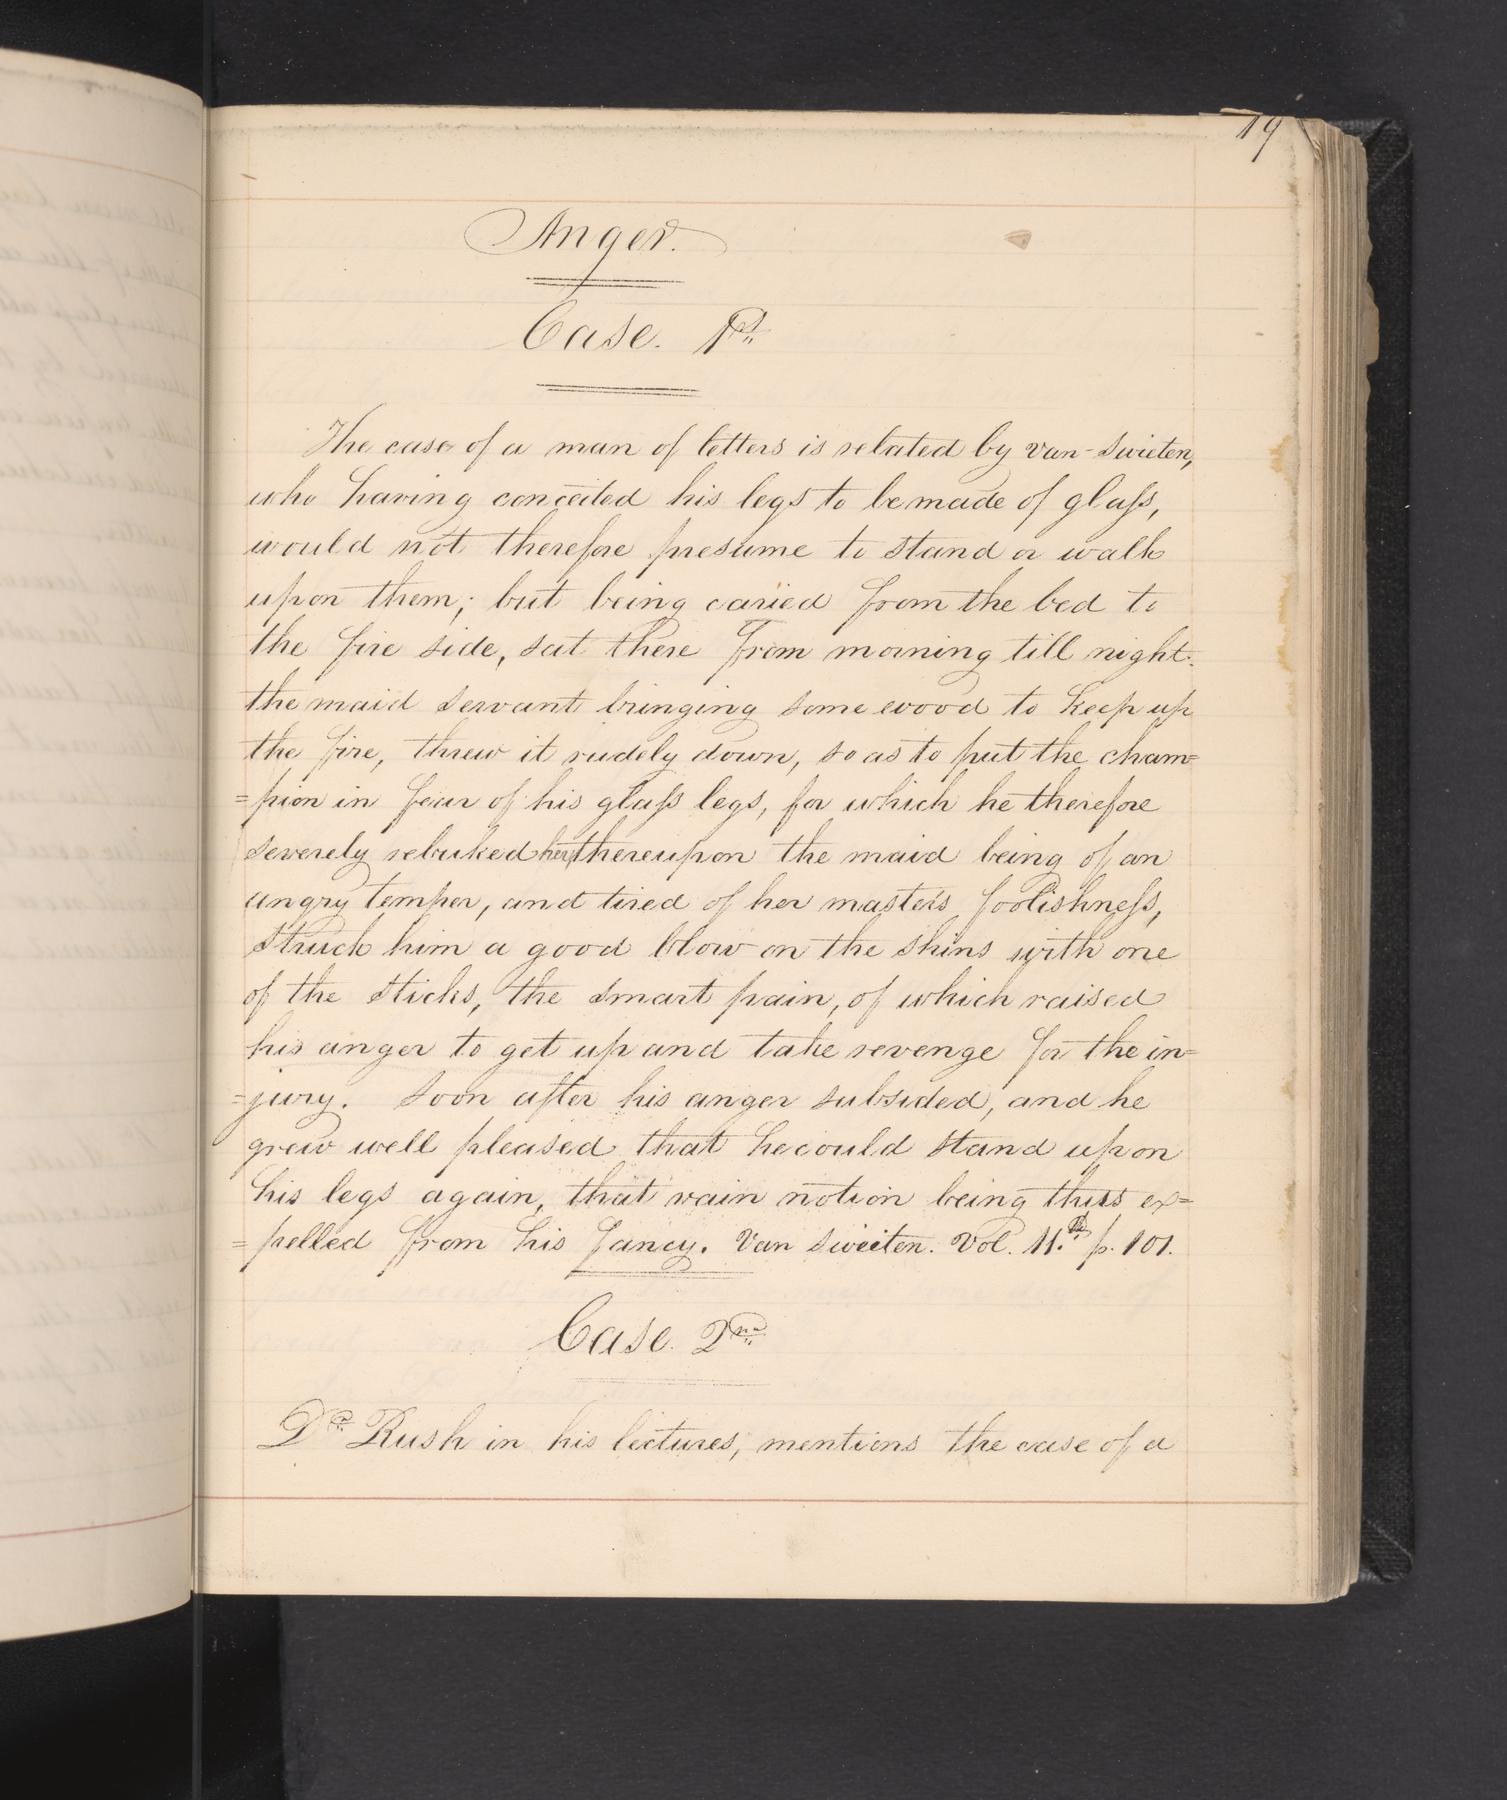 19
Anger.
Case. 1st
The case of a man of letters is related by van-Swieten,
who having conceited his legs to be made of glaſs,
would not therefore presume to stand or walk
upon them; but being caried from the bed to
the fire side, sat there from morning till night.
the maid servant bringing some wood to keep up
the fire, threw it rudely down, so as to put the cham=
=pion in fear of his glaſs legs, for which he therefore
severely rebuked her, thereupon the maid being of an
angry temper, and tired of her masters foolishneſs,
struck him a good blow on the shins with one
of the sticks, the smart pain, of which raised
his anger to get up and take revenge for the in=
=jury. Soon after his anger subsided, and he
grew well pleased that he could stand upon
his legs again, that vain notion being thus ex=
=pelled from his fancy. Van Sweiten. Vol. 11.th p. 101.
Case. 2nd
Dr Rush in his lectures, mentions the case of a